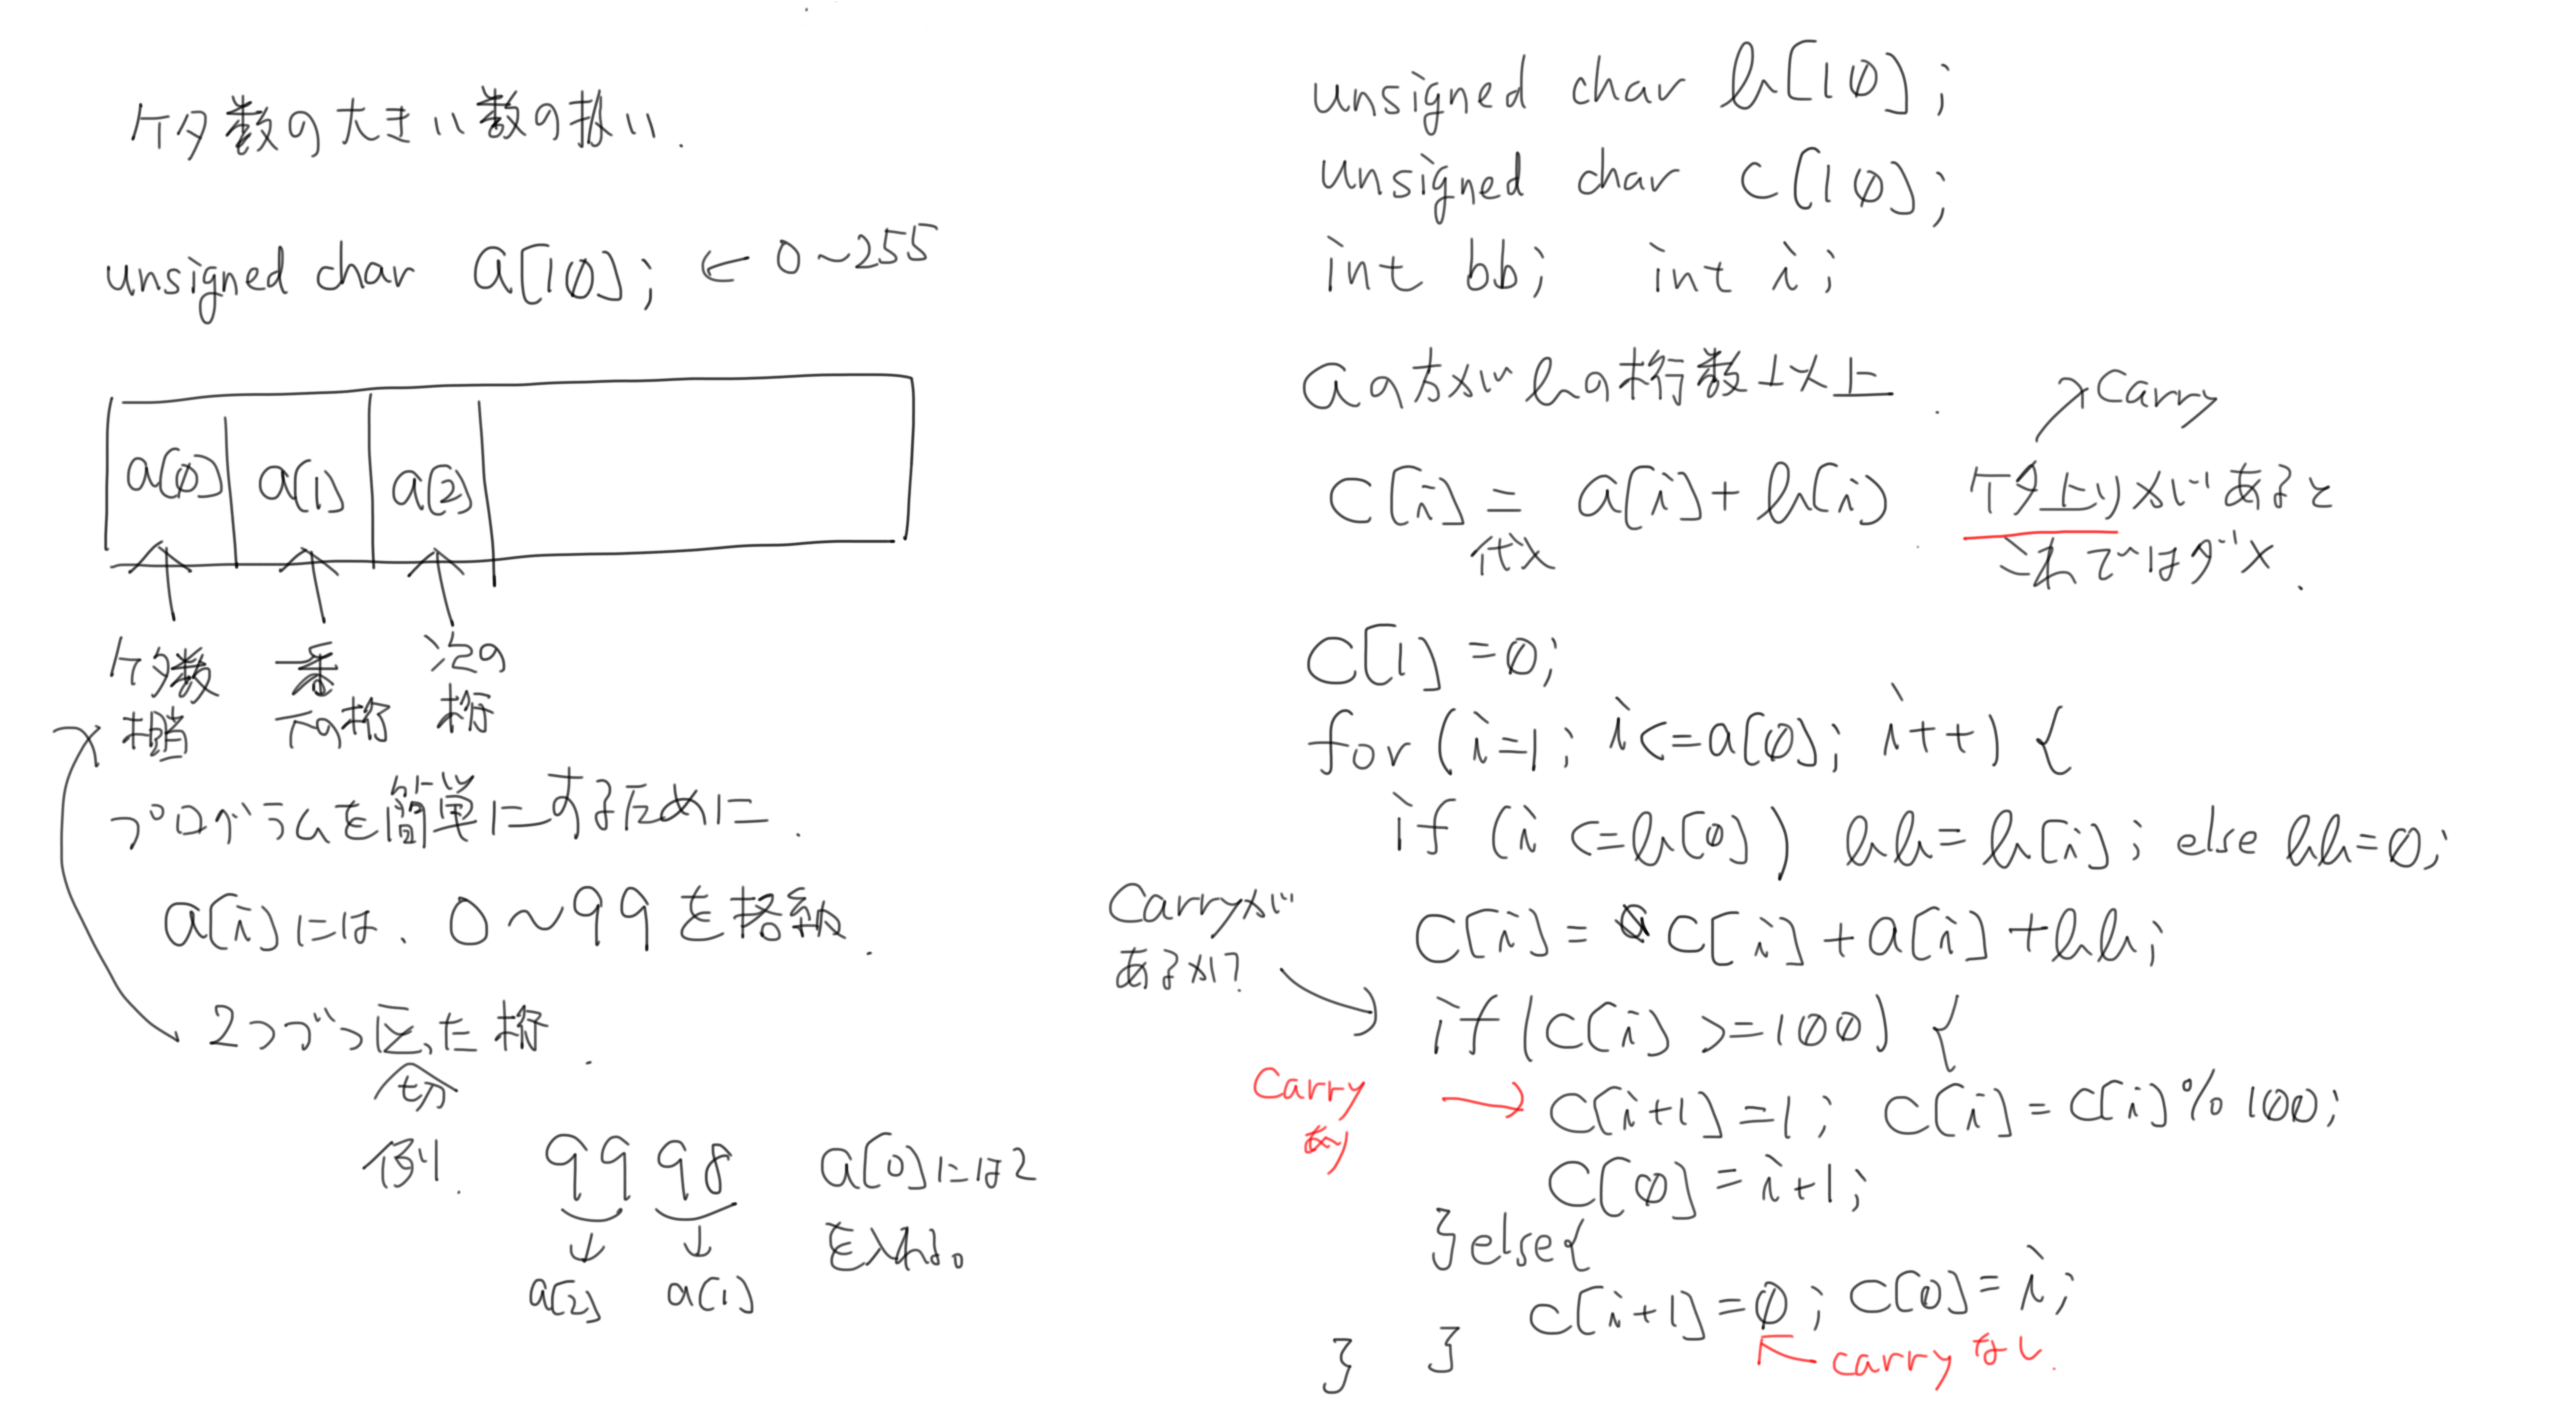 ケタ数の大きい数の扱い.
unsigned char a[10]; ← 0~255
a[0] a[1] a[2]
ケタ数 一番 次の
下の桁 桁
プログラムを簡単にするために.
a[i]には、0~99を格納.
2つづつ区った桁.
切
例. 99 98 a[0]には2
を入れる。
a[2] a[1]
unsigned char b[10];
unsigned char c[10];
int bb; int i;
aの方がbの桁数以上.
→carry
c[i] = a[i]+b[i] ケタ上りがあると
代入 これではダメ.
c[1]=0;
for (i=1; i<=a[0]; i++) {
if (i<=b[0]) bb=b[i]; else bb=0;
carryが
あるか?
c[i]= c[i]+a[i]+bb;
if(c[i]>=100) {
carry
あり
→ c[i+1]=1; c[i]=c[i]%100;
c[0]=i+1;
}else{
c[i+1]=0; c[0]=i;
} } ← carryなし.